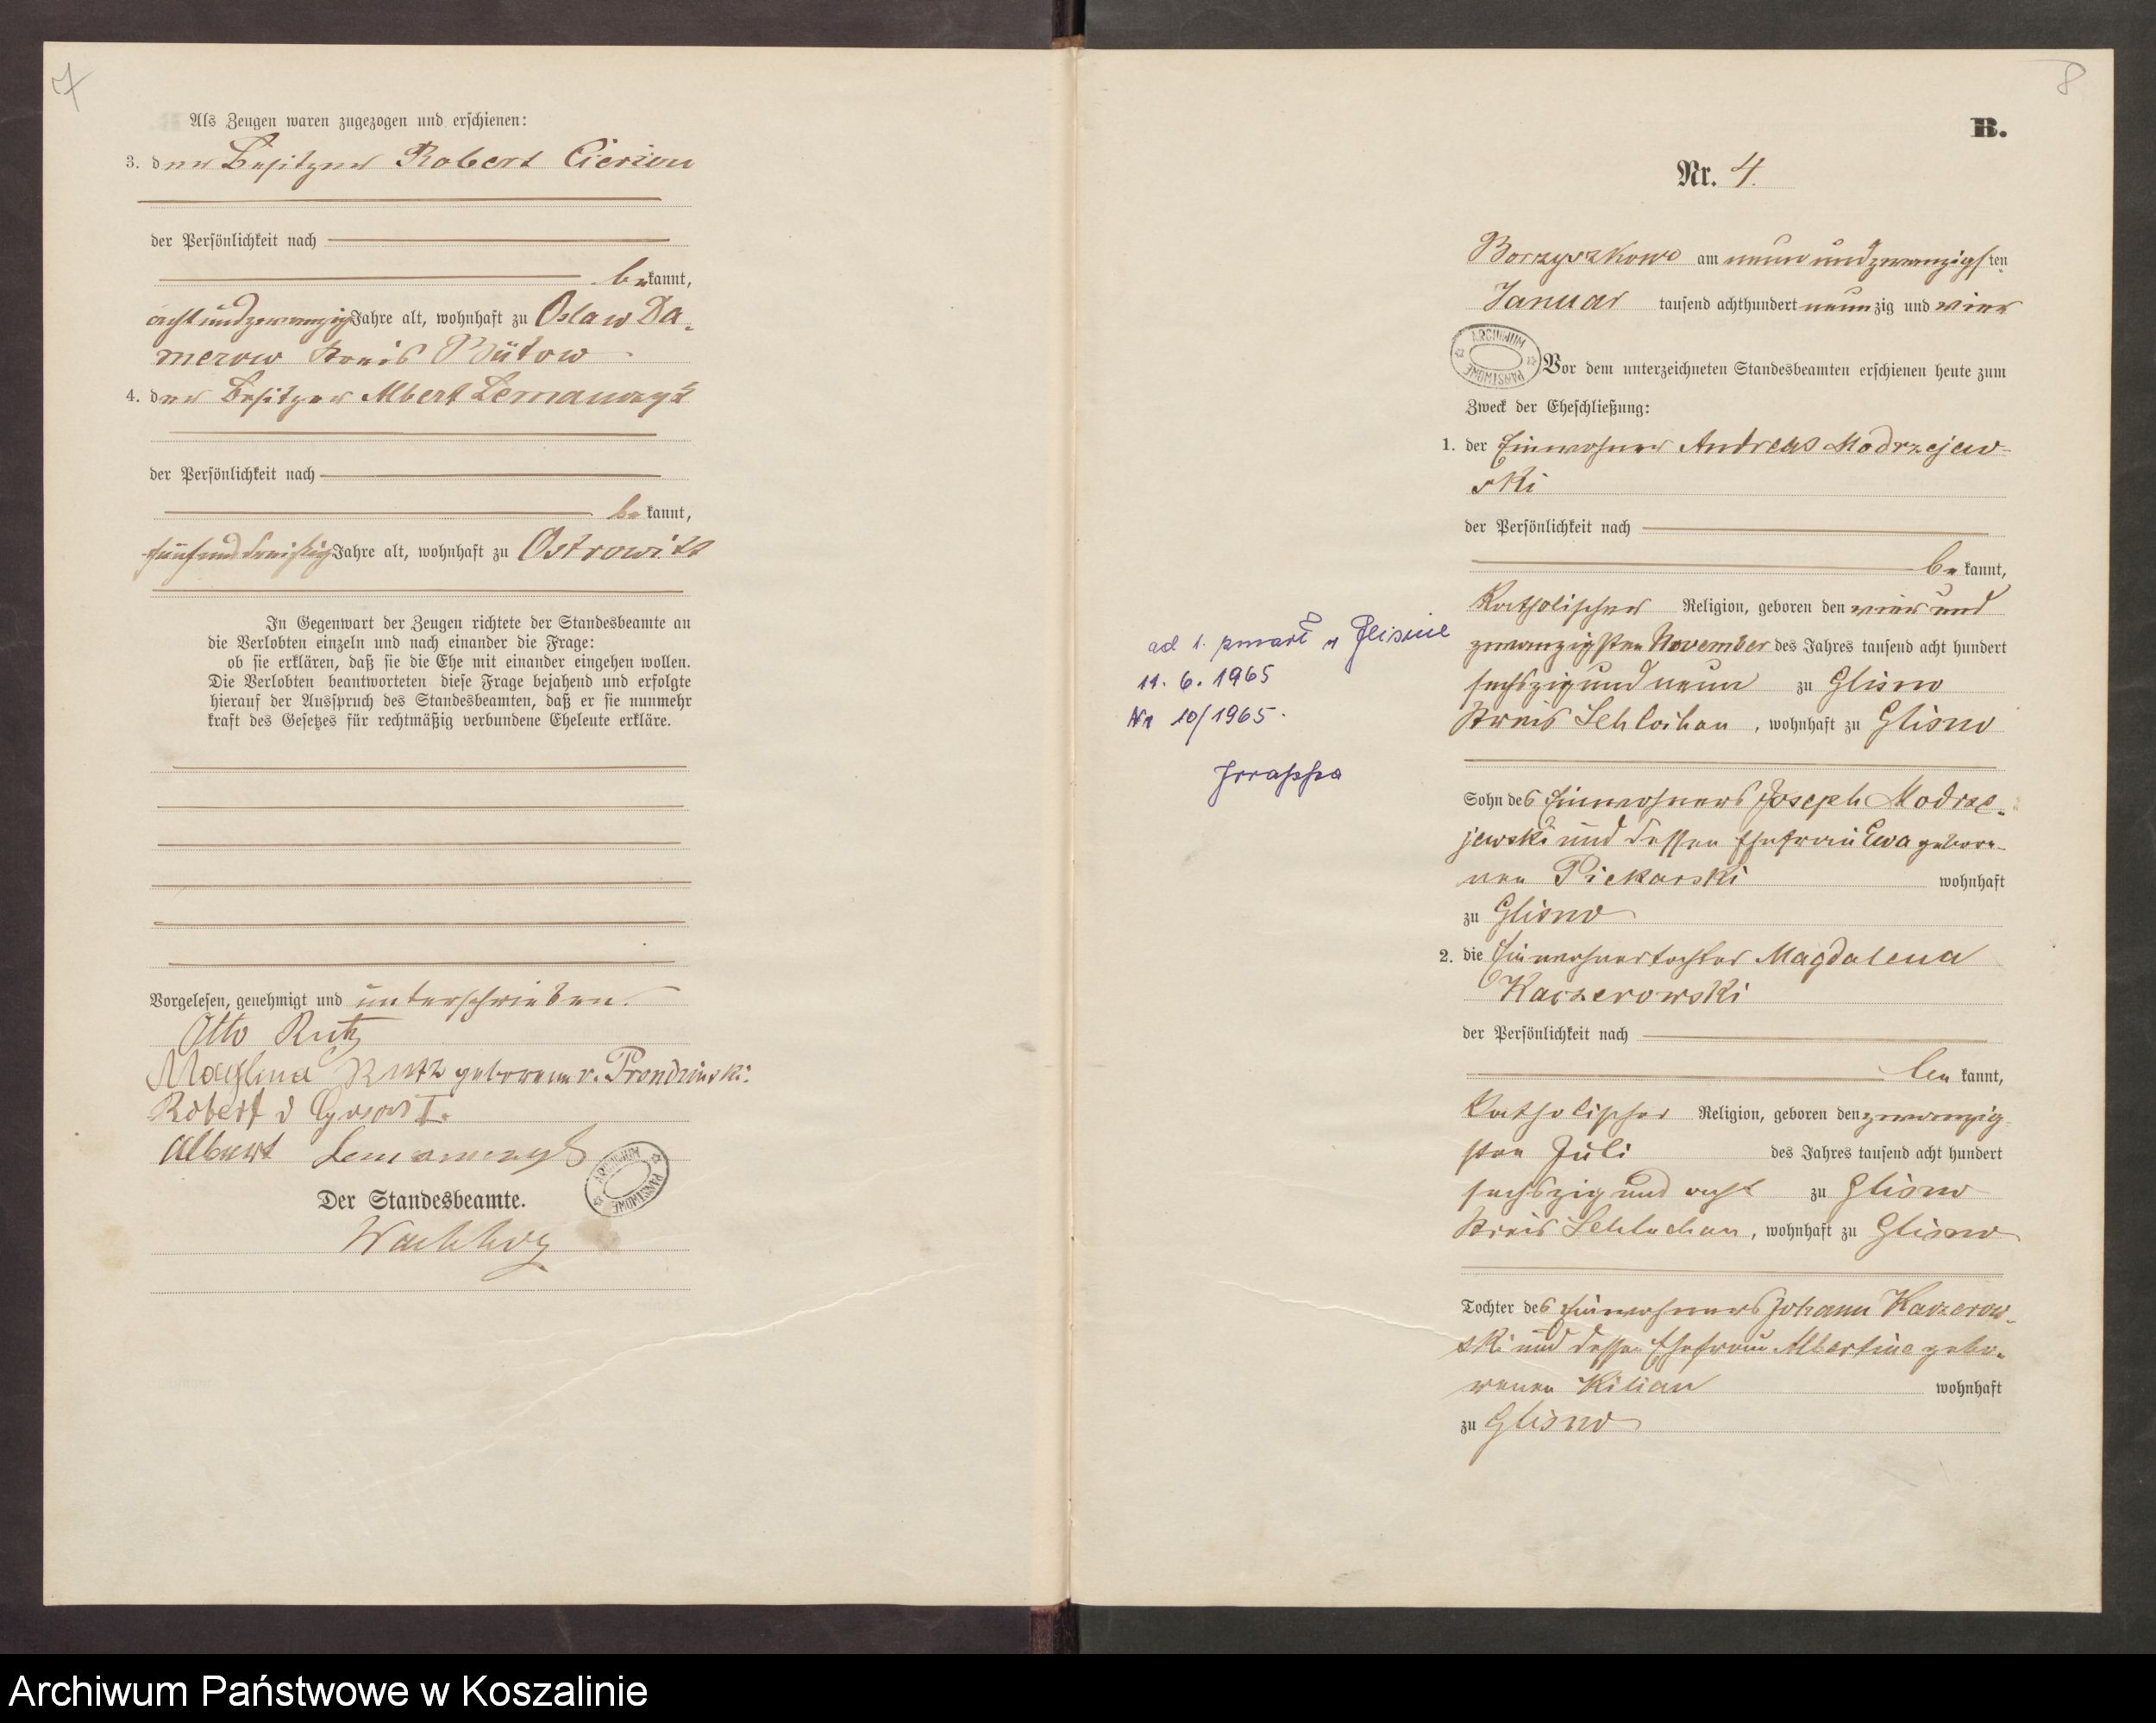 7
Als Zeugen waren zugezogen und erschienen:
3. der Besitzer Robert Cierson
der Persönlichkeit nach
bekannt,
achtundzwanzig Jahre alt, wohnhaft zu Oslaw Da-
merow Kreis Bütow
4. der Besitzer Albert Lemanczyk
der Persönlichkeit nach
be kannt,
fünfunddreißig Jahre alt, wohnhaft zu Ostrowitt
In Gegenwart der Zeugen richtete der Standesbeamte an
die Verlobten einzeln und nach einander die Frage:
ob sie erklären, daß sie die Ehe mit einander eingehen wollen.
Die Verlobten beantworteten diese Frage bejahend und erfolgte
hierauf der Ausspruch des Standesbeamten, daß er sie nunmehr
kraft des Gesetzes für rechtmäßig verbundene Eheleute erkläre.
Vorgelesen, genehmigt und unterschrieben.
Otto Rutz
Rutz geborene v. Prondzinski.
Robert
Albert Lemanczyk
ARCHIWUM PAŃSTWOWE
Der Standesbeamte.
8
B.
Nr. 4.
Borzyszkowo am neun und zwanzigsten
Januar tausend achthundert neunzig und vier
ARCHIWUM PAŃSTWOWE
Vor dem unterzeichneten Standesbeamten erschienen heute zum
Zweck der Eheschließung:
1. der Einwohner Andreas Modrzejew-
ski
der Persönlichkeit nach
be kannt,
Katholischer Religion, geboren den vier und
zwanzigsten November des Jahres tausend acht hundert
sechszig und neun zu Glisno
Kreis Schlochau, wohnhaft zu Glisno
ad 1. zmarł w Glisnie
11. 6. 1965
Nr 10/1965.
Sohn des Einwohners Joseph Modrze-
jewski und dessen Ehefrau Ewa gebore-
nen Piekarski wohnhaft
zu Glisno
2. die Einwohnertochter Magdalena
Kaczerowski
der Persönlichkeit nach
kannt,
Katholischer Religion, geboren den zwanzig-
sten Juli des Jahres tausend acht hundert
sechszig und acht zu Glisno
Kreis Schlochau, wohnhaft zu Glisno
Tochter des Einwohners Johann Kaczerow-
ski und dessen Ehefrau Albertine gebo-
renen Kilian wohnhaft
zu Glisno
Archiwum Państwowe w Koszalinie